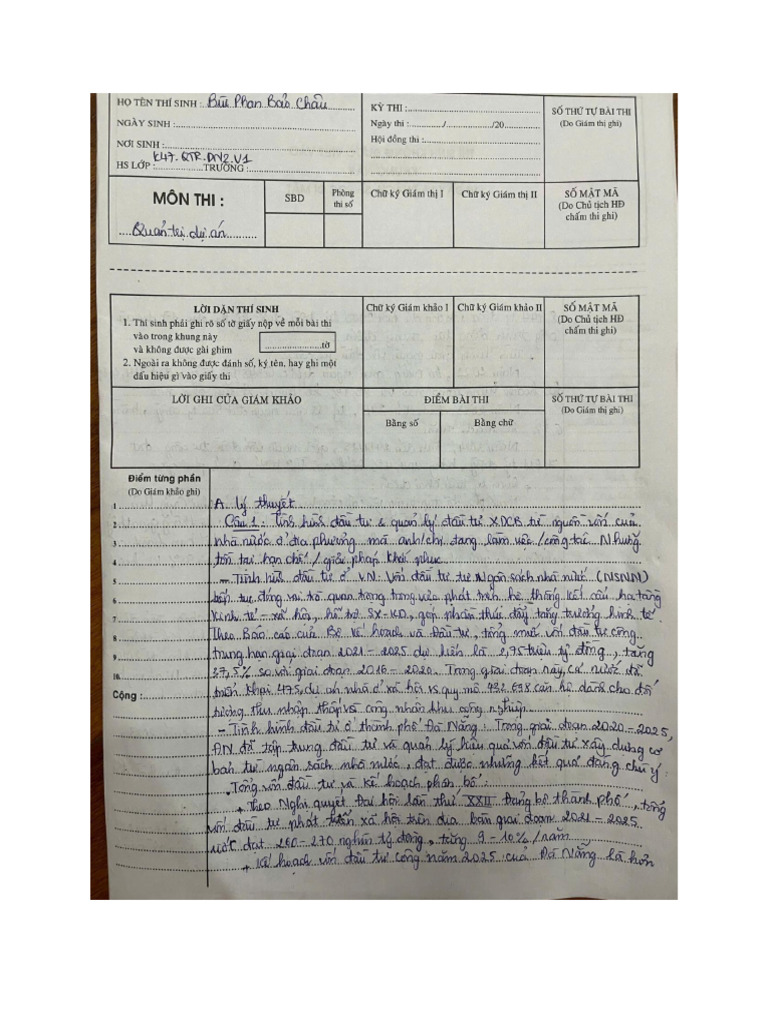 HỌ TÊN THÍ SINH : Bùi Phan Bảo Châu
NGÀY SINH :
NƠI SINH :
HS LỚP : K47.QTR.DN2.V1 TRƯỜNG :
KỲ THI :
Ngày thi : / /20
Hội đồng thi :
SỐ THỨ TỰ BÀI THI
(Do Giám thị ghi)
MÔN THI :
Quản trị dự án
SBD
Phòng
thi số
Chữ ký Giám thị I
Chữ ký Giám thị II
SỐ MẬT MÃ
(Do Chủ tịch HĐ
chấm thi ghi)
LỜI DẶN THÍ SINH
1. Thí sinh phải ghi rõ số tờ giấy nộp về mỗi bài thi
vào trong khung này
và không được gài ghim
tờ
2. Ngoài ra không được đánh số, ký tên, hay ghi một
dấu hiệu gì vào giấy thi
Chữ ký Giám khảo I
Chữ ký Giám khảo II
SỐ MẬT MÃ
(Do Chủ tịch HĐ
chấm thi ghi)
LỜI GHI CỦA GIÁM KHẢO
ĐIỂM BÀI THI
Bằng số
Bằng chữ
SỐ THỨ TỰ BÀI THI
(Do Giám thị ghi)
Điểm từng phần
(Do Giám khảo ghi)
1
2
3
4
5
6
7
8
9
10
Cộng :
A. Lý thuyết
Câu 1 : Tình hình đầu tư & quản lý đầu tư XDCB từ nguồn vốn của
nhà nước ở địa phương mà anh/chị đang làm việc/công tác. Những
tồn tại hạn chế / giải pháp khắc phục
- Tình hình đầu tư ở VN: Vốn đầu tư từ Ngân sách nhà nước (NSNN)
tiếp tục đóng vai trò quan trọng trong việc phát triển hệ thống kết cấu hạ tầng
kinh tế - xã hội, hỗ trợ SX-KD, góp phần thúc đẩy tăng trưởng kinh tế.
Theo Báo cáo của Bộ Kế hoạch và Đầu tư, tổng mức vốn đầu tư công
trung hạn giai đoạn 2021 - 2025 dự kiến là 2,75 triệu tỷ đồng, tăng
37,5% so với giai đoạn 2016 - 2020. Trong giai đoạn này, cả nước đã
triển khai 475 dự án nhà ở xã hội vs quy mô căn hộ dành cho đối
tượng thu nhập thấp và công nhân khu công nghiệp.
- Tình hình đầu tư ở thành phố Đà Nẵng : Trong giai đoạn 2020 - 2025,
ĐN đã tập trung đầu tư và quản lý hiệu quả vốn đầu tư xây dựng cơ
bản từ ngân sách nhà nước, đạt được những kết quả đáng chú ý:
• Tổng vốn đầu tư và kế hoạch phân bổ:
+ Theo Nghị quyết Đại hội lần thứ XXII Đảng bộ thành phố, tổng
vốn đầu tư phát triển xã hội trên địa bàn giai đoạn 2021 - 2025
ước đạt 260 - 270 nghìn tỷ đồng, tăng 9 - 10% / năm
+ Kế hoạch vốn đầu tư công năm 2025 của Đà Nẵng là hơn